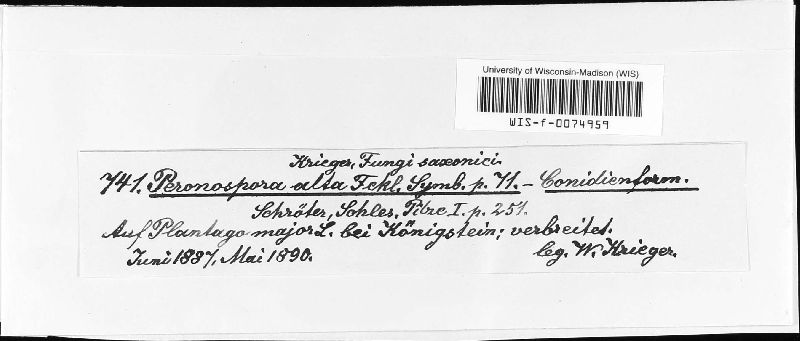 University of Wisconsin-Madison (WIS)
WIS-f-0074959
Krieger, Fungi saxonici.
741. Peronospora alta Fckl. Symb. p. 71. — Conidienform.
Schröter, Schles. Pilze I. p. 251.
Auf Plantago major L. bei Königstein; verbreitet.
Juni 1887, Mai 1890. leg. W. Krieger.